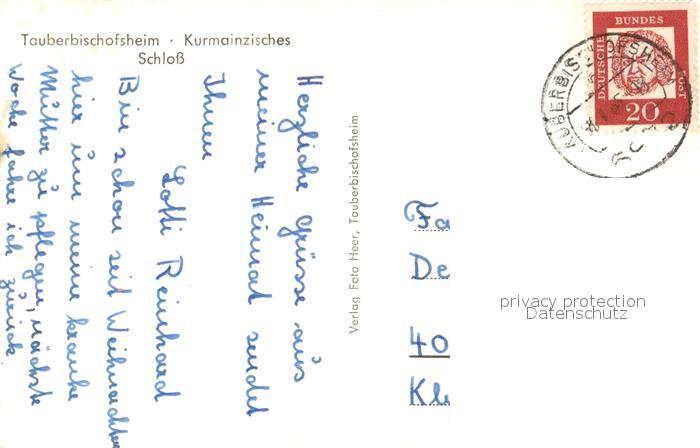 Tauberbischofsheim · Kurmainzisches
Schloß
Herzliche Grüsse aus
meiner Heimat sendet
Ihnen
Lotti Reinhard
Bin schon seit Weihnachten
hier um meine kranke
Mutter zu pflegen, nächste
Woche fahre ich
zurück
Verlag Foto Heer, Tauberbischofsheim
DEUTSCHE
BUNDES
POST
20
TAUBERBISCHOFSHEIM
Fa
De
40
Kle
privacy protection
Datenschutz